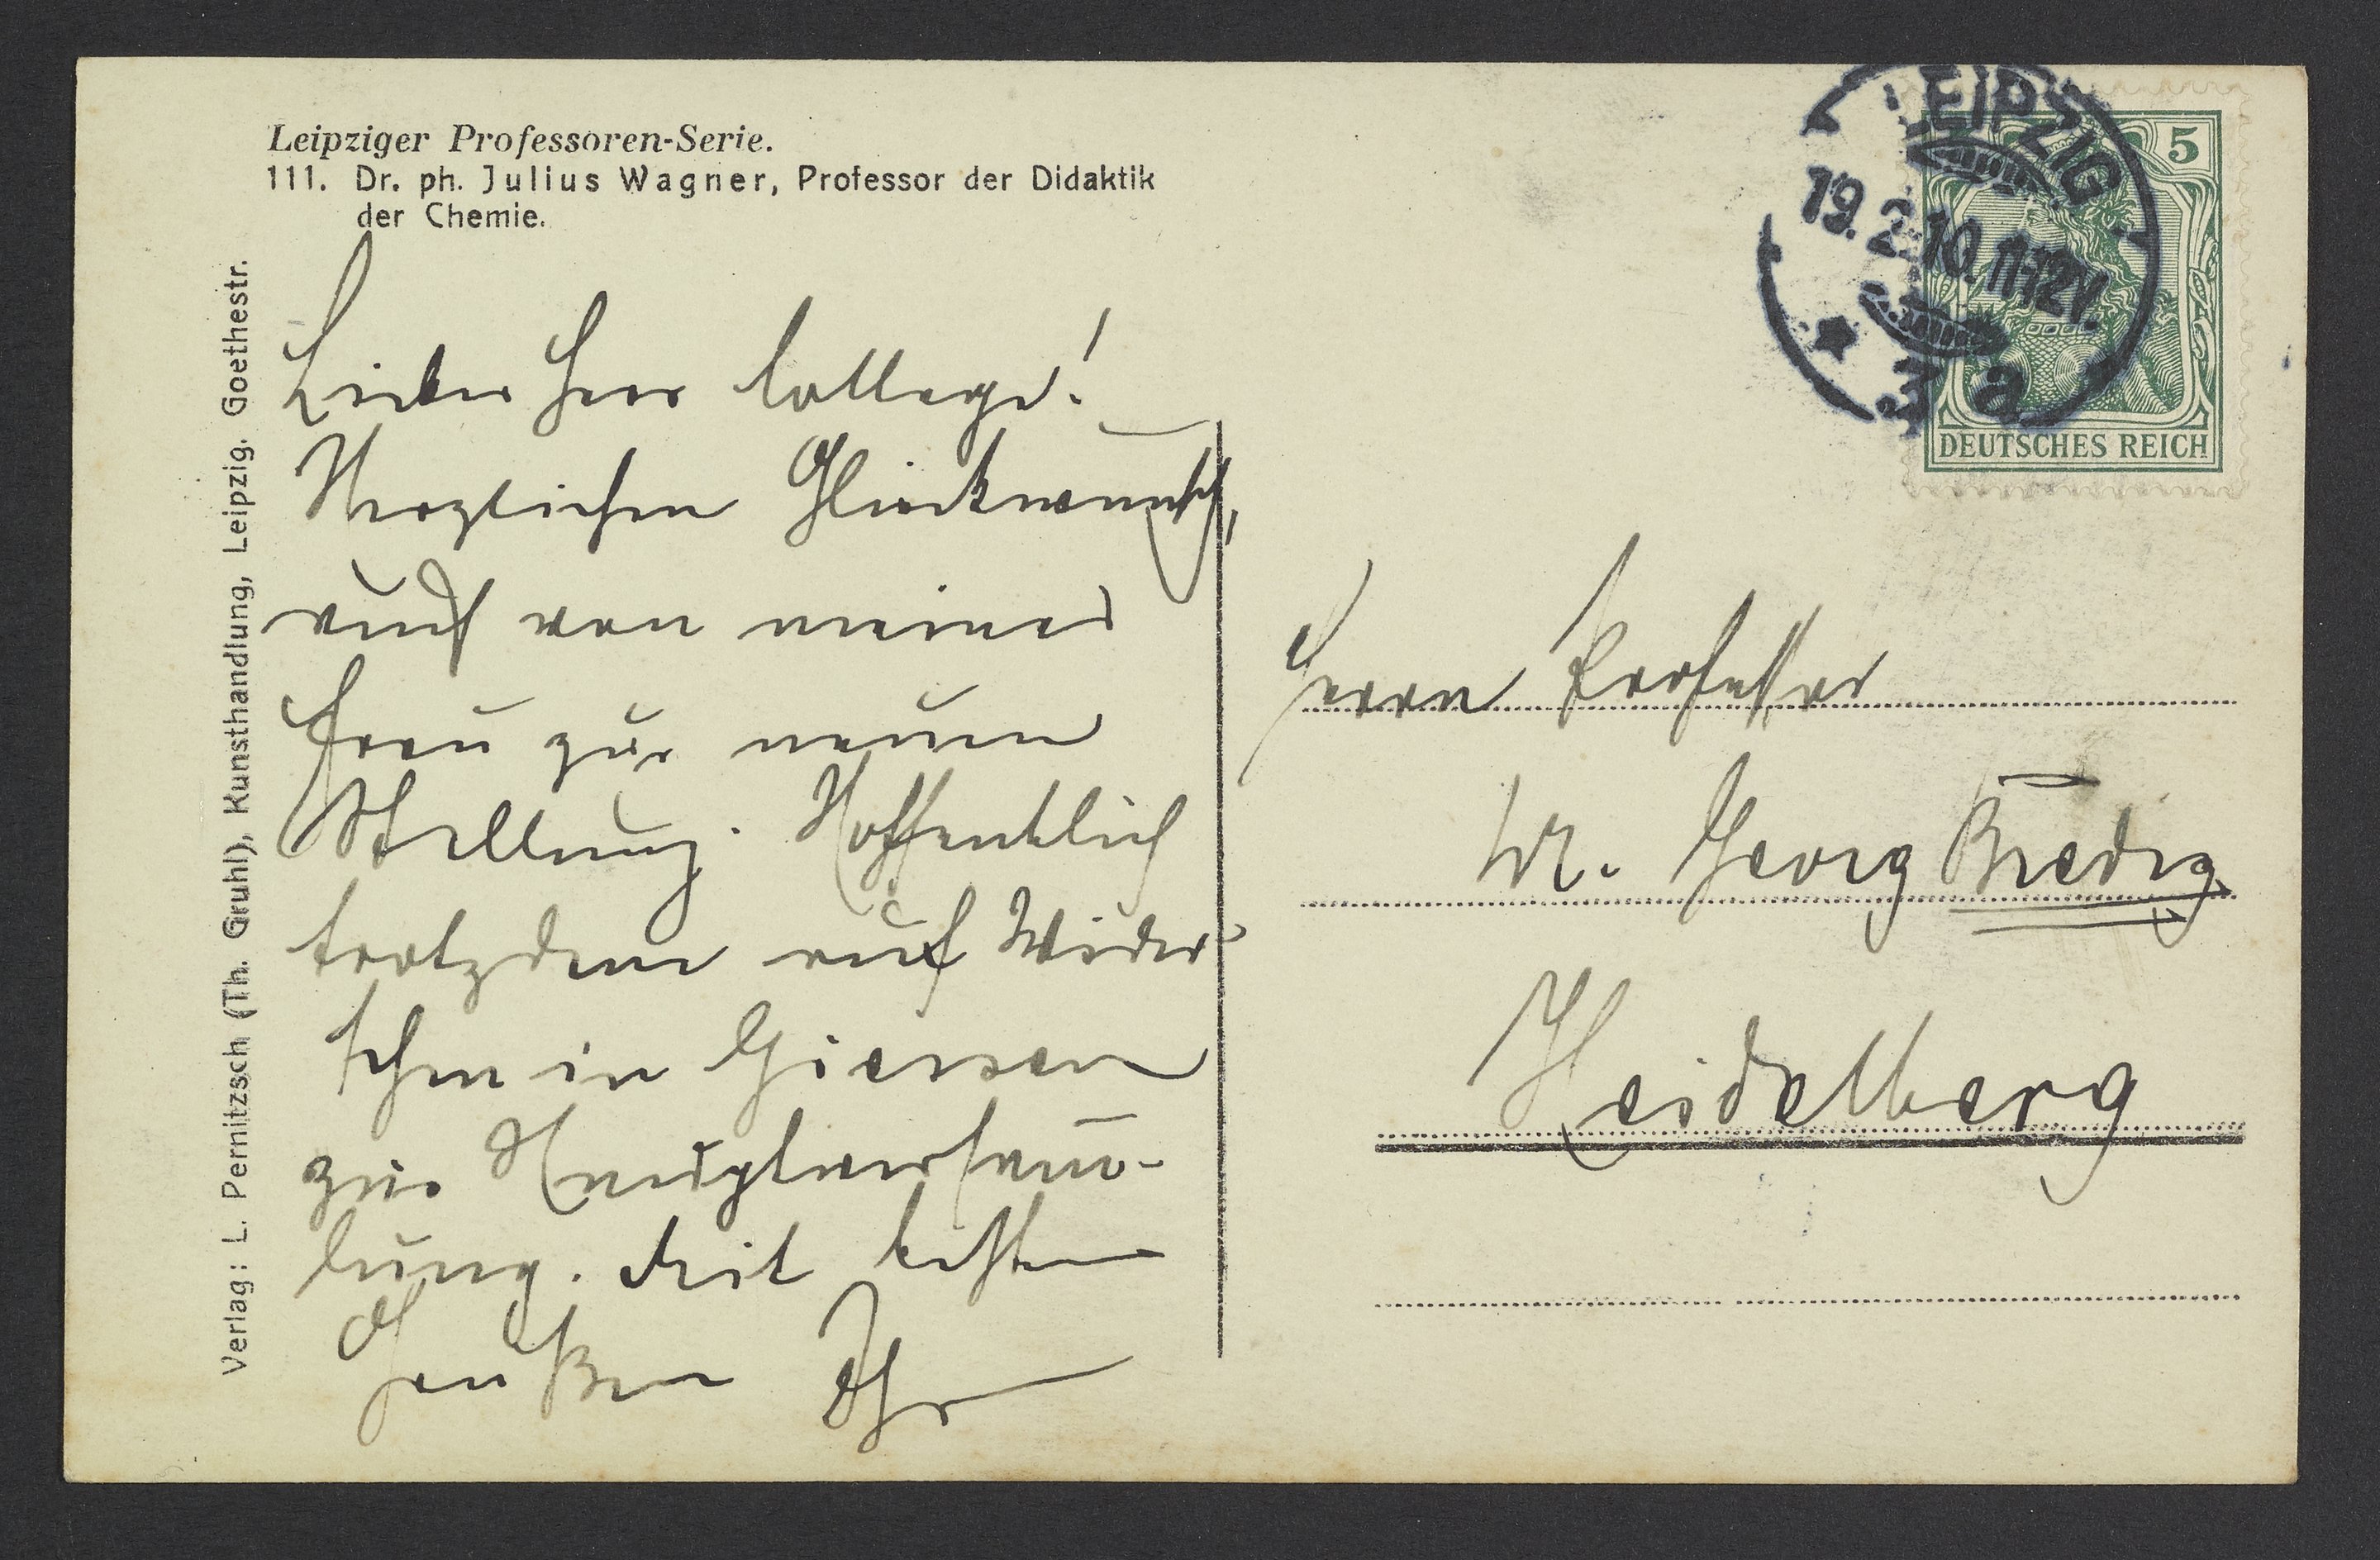 Leipziger Professoren-Serie.
111. Dr. ph. Julius Wagner, Professor der Didaktik
der Chemie.
Verlag: L. Pernitzsch (Th. Gruhl), Kunsthandlung, Leipzig, Goethestr.
Lieber Herr College!
Herzlichen Glückwunsch,
auch von meiner
Frau zur neuen
Stellung. Hoffentlich
trotzdem auf Wieder-
sehn in Giessen
zur Hauptversamm-
lung. Mit besten
Grüßen Ihr
LEIPZIG
19.2.10.11-12V.
* 3 a
5
DEUTSCHES REICH
Herrn Professor
Dr. Georg Bredig
Heidelberg